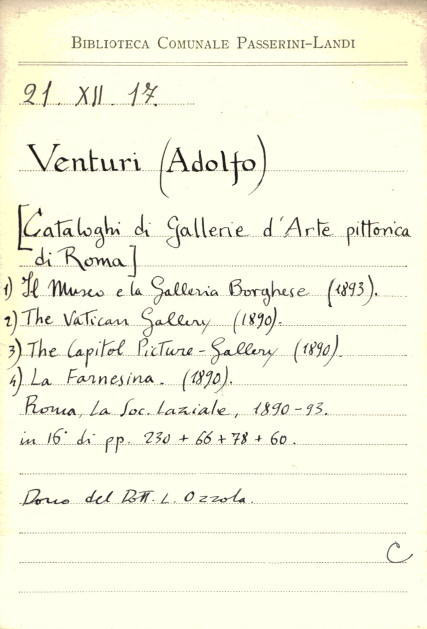 BIBLIOTECA COMUNALE PASSERINI-LANDI
21. XII. 17.
Venturi (Adolfo)
[Cataloghi di Gallerie d'Arte pittorica
di Roma]
1) Il Museo e la Galleria Borghese (1893).
2) The Vatican Gallery (1890).
3) The Capitol Picture-Gallery (1890).
4) La Farnesina. (1890).
Roma, La Soc. Laziale, 1890-93.
in 16° di pp. 230 + 66 + 78 + 60.
Dono del Dott. L. Ozzola.
C